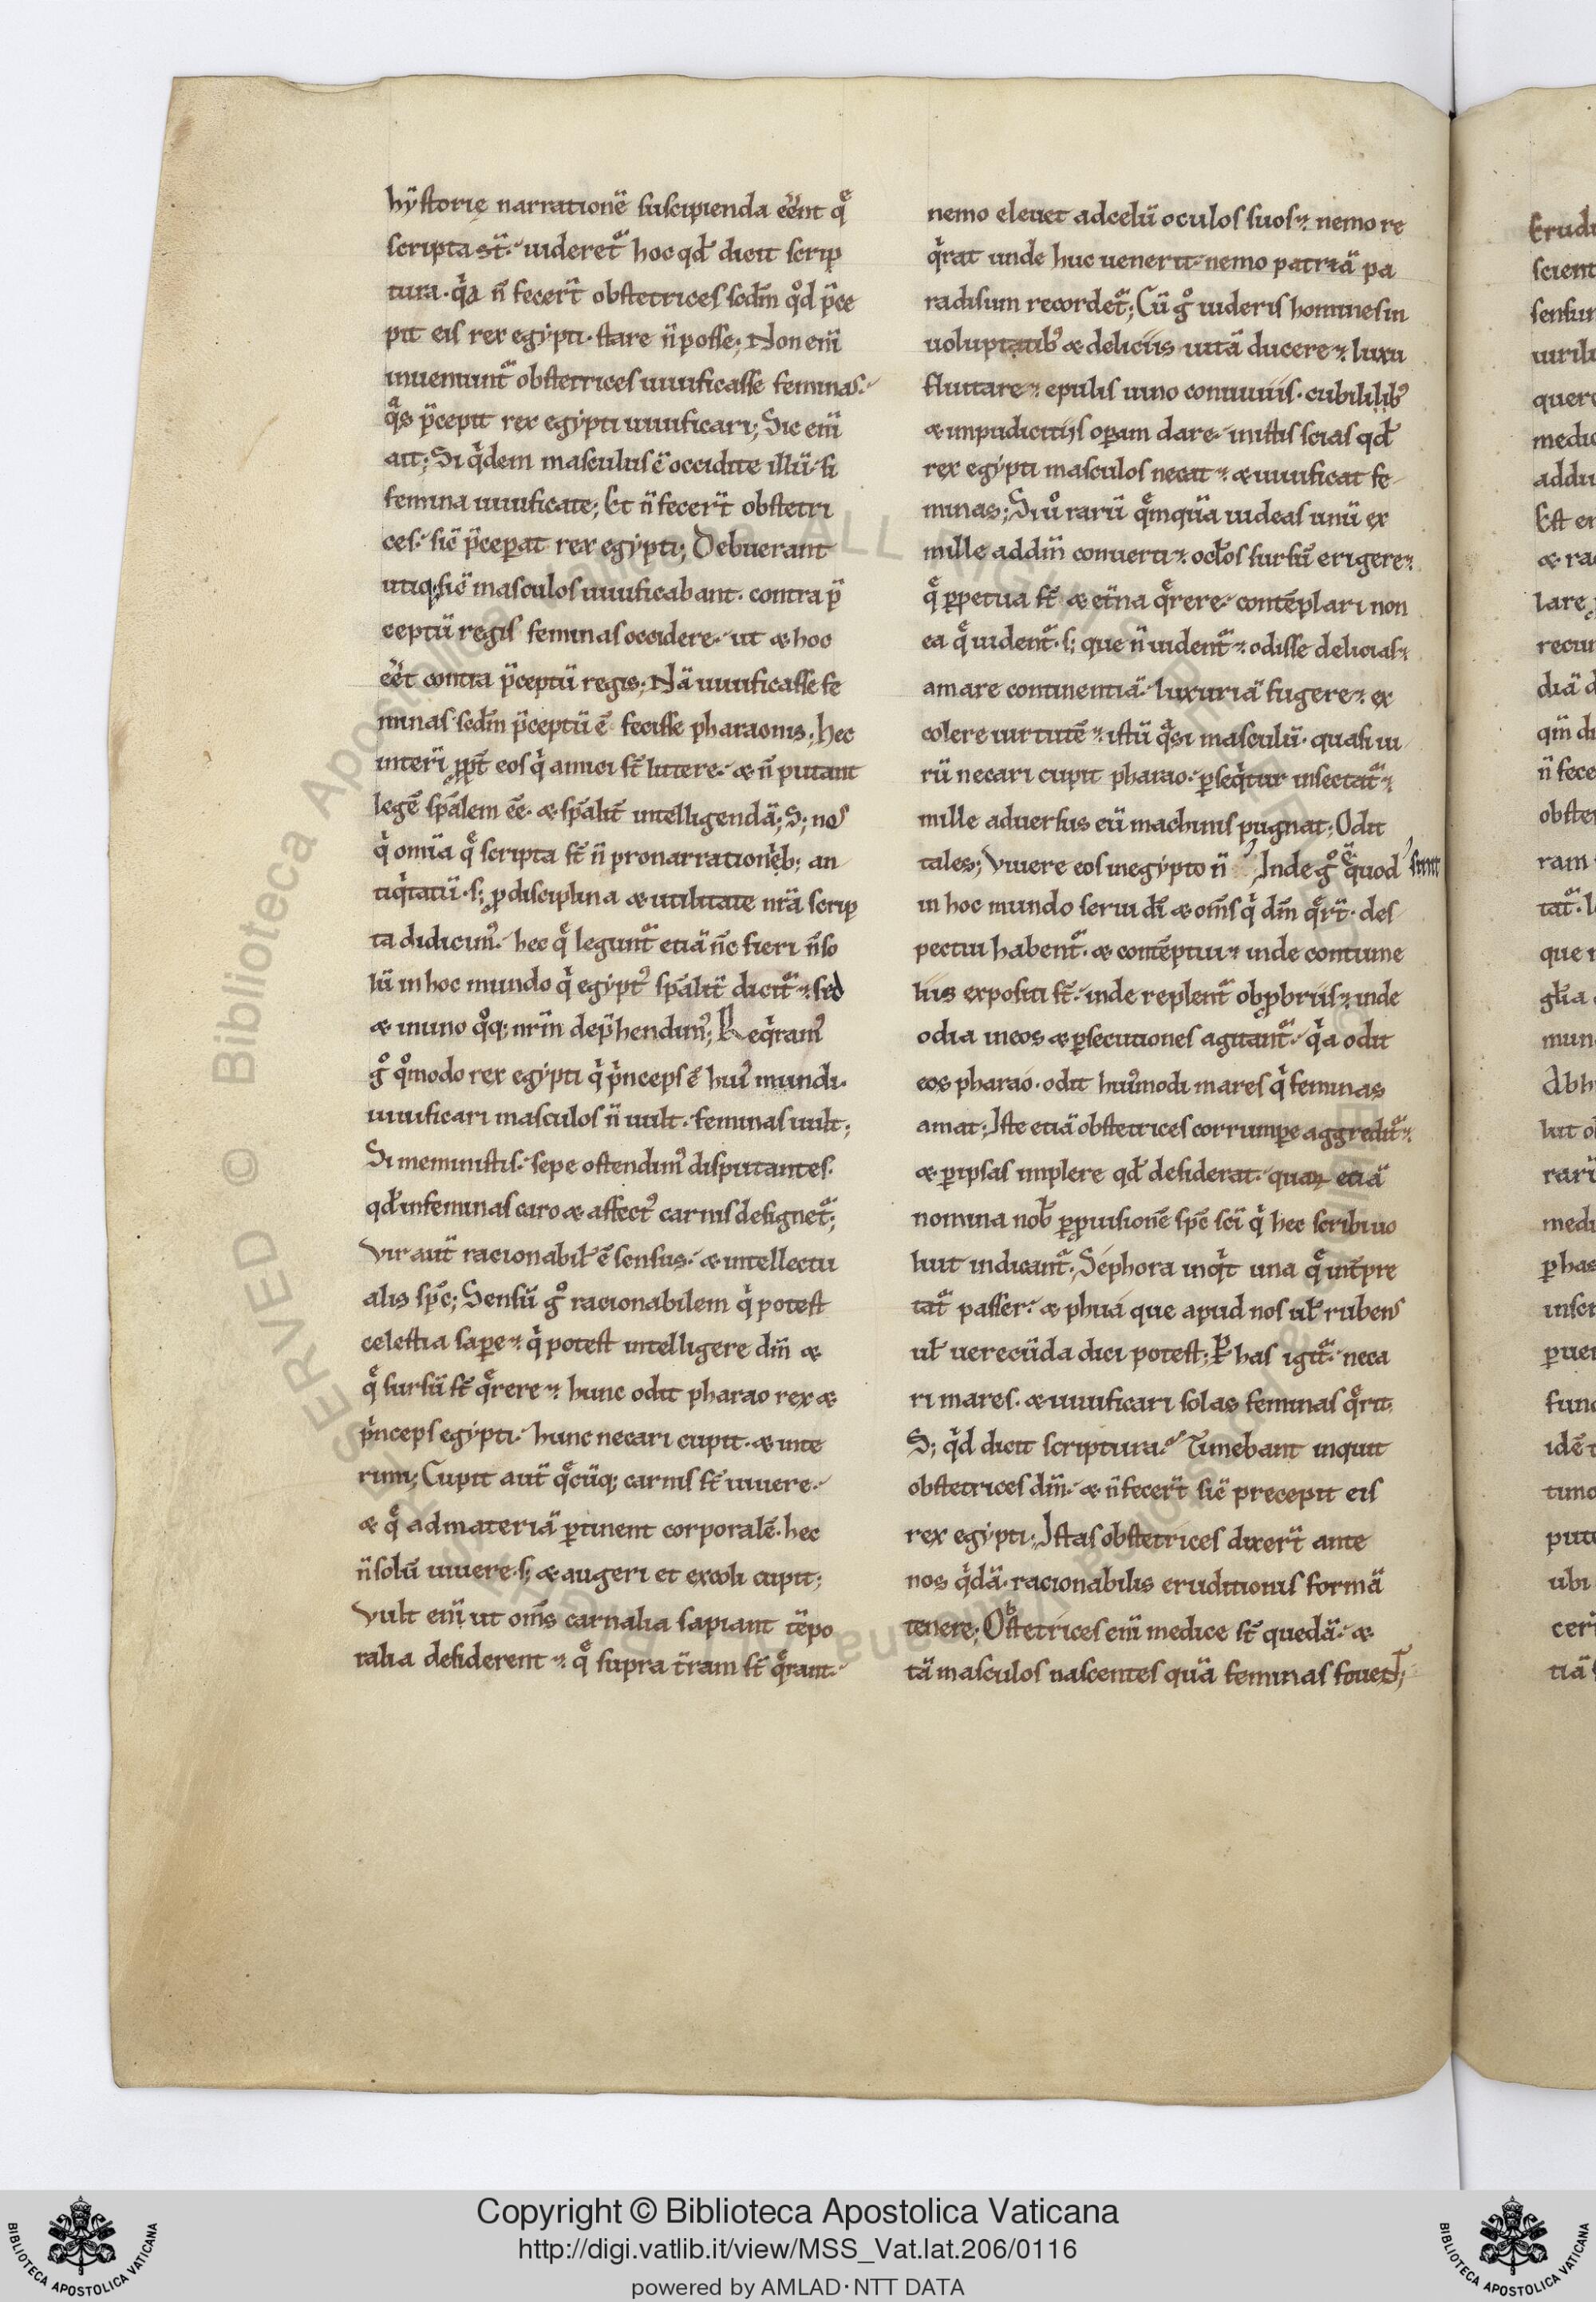 hẏstorię narratione̅ suscipienda ee̅nt qͤ
scripta st̅. uideret᷑ hoc qd̕ dicit scrip
tura. qͥa n̅ fecer̅t obstetrices scdm̅ qͦd p̅ce
pit eis rex egẏpti. stare n̅ posse; Non eni̅
inueniunt᷑ obstetrices uiuificasse feminas.
qͣs p̅cepit rex egẏpti uiuificari; Sic eni̅
ait; Si qͥdem masculus e̅ occidite illu̅. si
femina uiuificate; Et n̅ fecer̅t obstetri
ces. sic̅ p̅ceꝑat rex egẏpti; Debuerant
utiq; sic̅ masculos uiuificabant. contra p̅
ceptu̅ regis feminas occidere. ut & hoc
ee̅t contra p̅ceptu̅ regis; Na̅ uiuificasse fe
minas scdm̅ p̅ceptu̅ e̅ fecisse pharaonis; hec
interi̅ ꝓpt̅ eos qͥ amici st̅ littere. & n̅ putant
lege̅ sp̅alem ee̅. & sp̅alit̅ intelligenda̅; S; nos
qͥ omi̅a qͤ scripta st̅ n̅ pro narrationib; an
tiqͥtatu̅. s; ꝓ disciplina & utilitate nr̅a scrip
ta didicim᷒. hec qͤ legunt᷑ etia̅ nc̅ fieri n̅ so
lu̅ in hoc mundo qͥ egẏpt᷒ sp̅alit̅ dicit᷑. sed
& in uno qͦq; nr̅m dep̅hendim᷒; Reqͥram᷒
gͦ qͦmodo rex egẏpti qͥ pͥnceps e̅ hui᷒ mundi.
uiuificari masculos n̅ uult. feminas uult;
Si meministis. sepe ostendim᷒ disputantes.
qd̕ in feminas caro & affect᷒ carnis designet᷑;
Vir aut̅ racionabil̕ e̅ sensus. & intellectu
alis spc̅; Sensu̅ gͦ racionabilem qͥ potest
celestia saꝑe. qͥ potest intelligere dm̅ &
qͤ sursu̅ st̅ qͤrere. hunc odit pharao rex &
pͥnceps egẏpti. hunc necari cupit. & inte
rimi; Cupit aut̅ qͤcu̅q; carnis st̅ uiuere.
& qͤ ad materia̅ ꝑtinent corporale̅. hec
n̅ solu̅ uiuere. s; & augeri et excoli cupit;
Vult eni̅ ut oms̅ carnalia sapiant te̅po
ralia desiderent. qͤ supra tr̅am st̅ qͤrant.
nemo eleuet ad celu̅ oculos suos. nemo re
qͥrat unde huc uenerit. nemo patria̅ pa
radisum recordet᷑; Cu̅ gͦ uideris homines in
uoluptatib᷒ & deliciis uita̅ ducere. luxu
fluitare. epulis uino conuiuiis. cubililib᷒
& impudiciciis oꝑam dare. in istis scias qd̕
rex egẏpti masculos necat. & uiuificat fe
minas; Si uͦ raru̅ qͤmqua̅ uideas unu̅ ex
mille ad dm̅ conuerti. oclos̕ sursu̅ erigere.
qͤ ꝑpetua st̅ & et̅na qͤrere. conte̅plari non
ea qͤ uident᷑. s; que n̅ uident᷑. odisse delicias.
amare continentia̅. luxuria̅ fugere. ex
colere uirtute̅. istu̅ qͣsi masculu̅. quasi ui
ru̅ necari cupit pharao. ꝑseqͥtur insectat᷑.
mille aduersus eu̅ machinis pugnat; Odit
tales; Viuere eos in egẏpto n̅ Inde gͦ e̅ quod sinit
in hoc mundo serui di̅ & oms̅ qͥ dm̅ qͤrt̅. des
pectui habent᷑. & conte̅ptui. inde contume
liis expositi st̅. inde replent᷑ obꝓbriis. inde
odia in eos & ꝑsecutiones agitant᷑. qͥa odit
eos pharao. odit hui᷒modi mares qͥ feminas
amat; Iste etia̅ obstetrices corrumꝑe aggredit᷑.
& ꝑ ipsas implere qd̕ desiderat. quaꝝ etia̅
nomina nob̕ ꝑ ꝓuisione̅ spc̅ sci̅ qͥ hec scribi uo
luit indicant᷑. Sephora inqͥt una qͤ int̅pre
tat᷑ passer. & phua que apud nos ul̕ rubens
ul̕ uerecu̅da dici potest; Ꝑ has igit᷑. neca
ri mares. & uiuificari solas feminas qͤrit.
S; qͥd dicit scriptura. Timebant inquit
obstetrices dm̅. & n̅ fecer̅t sic̅ precepit eis
rex egẏpti; Istas obstetrices dixer̅t ante
nos qͥda̅. racionabilis eruditionis forma̅
tenere; Obstetrices eni̅ medice st̅ queda̅. &
ta̅ masculos nascentes qua̅ feminas fouet;
Copyright © Biblioteca Apostolica Vaticana
http://digi.vatlib.it/view/MSS_Vat.lat.206/0116
powered by AMLAD·NTT DATA
BIBLIOTECA APOSTOLICA VATICANA
BIBLIOTECA APOSTOLICA VATICANA